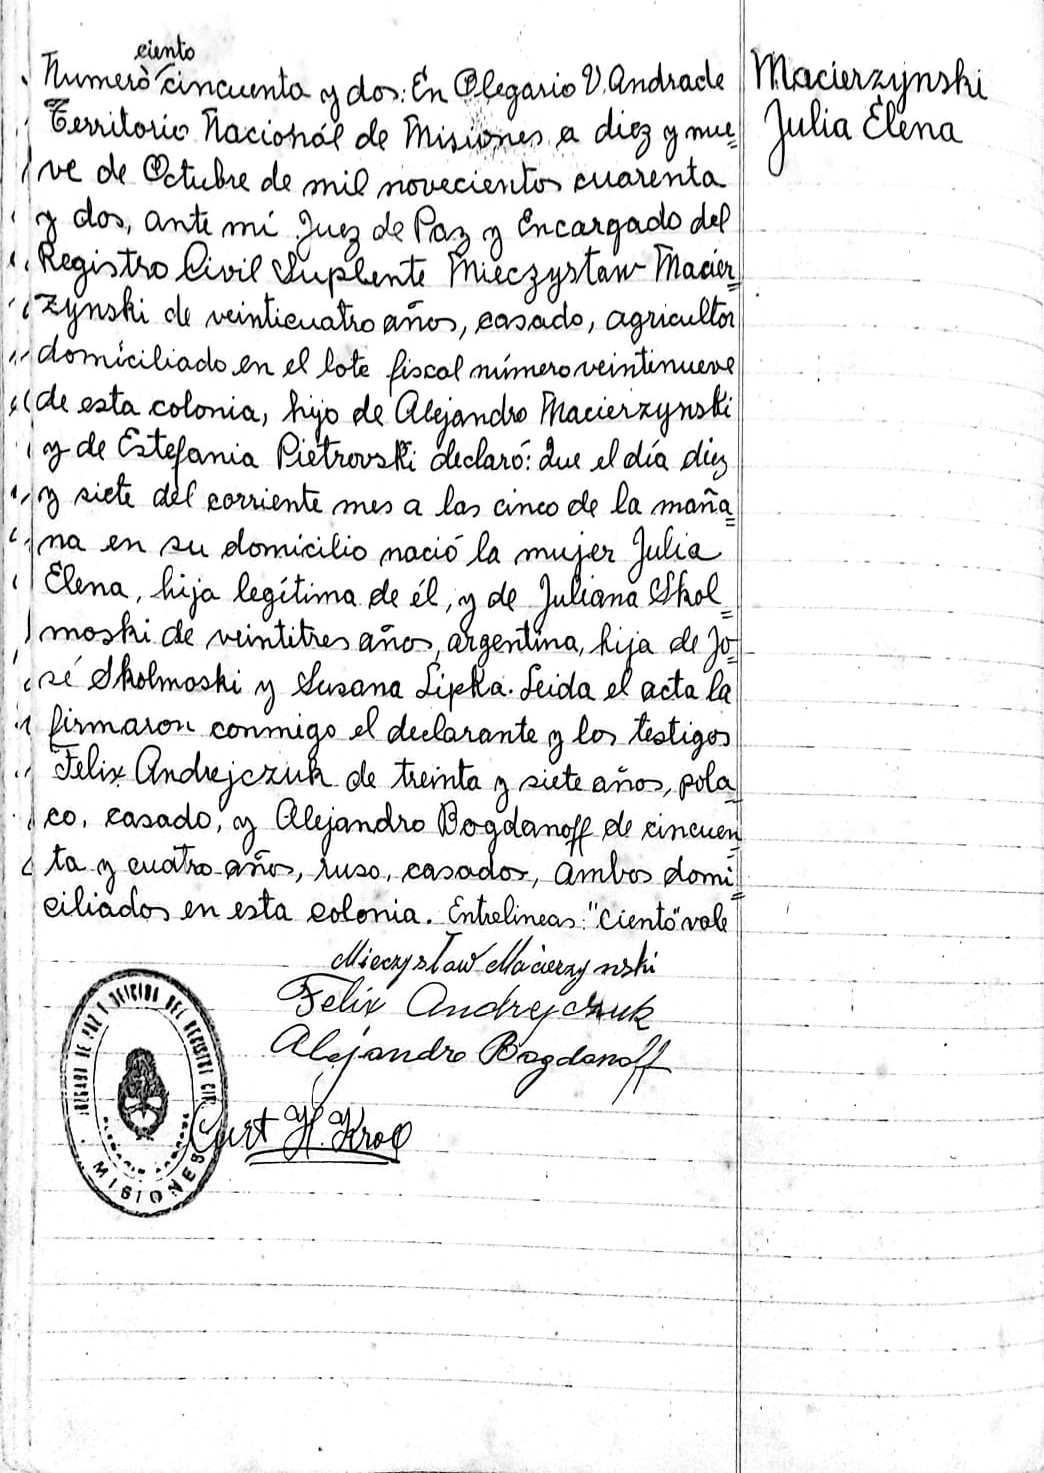 ciento
Numero cincuenta y dos: En Olegario V. Andrade
Territorio Nacional de Misiones a diez y nue=
ve de Octubre de mil novecientos cuarenta
y dos, ante mí Juez de Paz y Encargado del
Registro Civil Suplente Mieczystaw Macier=
zynski de veinticuatro años, casado, agricultor
domiciliado en el lote fiscal número veintinueve
de esta colonia, hijo de Alejandro Macierzynski
y de Estefania Pietrovski declaró: Que el día diez
y siete del corriente mes a las cinco de la maña=
na en su domicilio nació la mujer Julia
Elena, hija legítima de él, y de Juliana Skol=
moski de veintitres años, argentina, hija de Jo=
sé Skolmoski y Susana Lipka. Leida el acta la
firmaron conmigo el declarante y los testigos
Felix Andrejczuk de treinta y siete años, pola=
co, casado, y Alejandro Bogdanoff de cincuen=
ta y cuatro años, ruso, casados, ambos domi=
ciliados en esta colonia. Entrelineas: "ciento" vale
Macierzynski
Julia Elena
Mieczysław Macierzynski
Felix Andrejczuk
Alejandro Bogdanoff
Curt H. Kroll
JUZGADO DE PAZ Y OFICINA DEL REGISTRO CIVIL
MISIONES